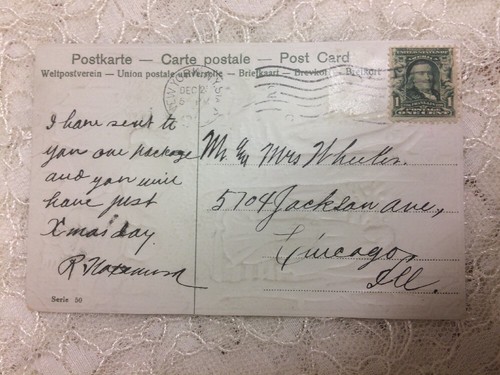 Postkarte – Carte postale – Post Card
Weltpostverein – Union postale universelle – Briefkaart – Brevkort – Brefkort
NEW YORK
DEC 2
1
I have sent to
you one package
and you will
have just
Xmas day.
R
Mr & Mrs Wheeler.
5704 Jackson ave,
Chicago,
Ill.
Serie 50